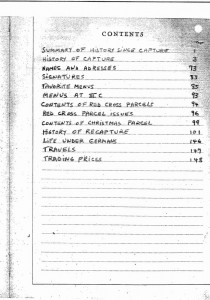 CONTENTS
SUMMARY OF HISTORY SINCE CAPTURE
HISTORY OF CAPTURE 3
NAMES AND ADRESSES 73
SIGNATURES 83
FAVORITE MENUS 85
MENUS AT III C 93
CONTENTS OF RED CROSS PARCELS 94
RED CROSS PARCEL ISSUES 96
CONTENTS OF CHRISTMAS PARCEL 99
HISTORY OF RECAPTURE 101
LIFE UNDER GERMANS 146
TRAVELS 147
TRADING PRICES 148